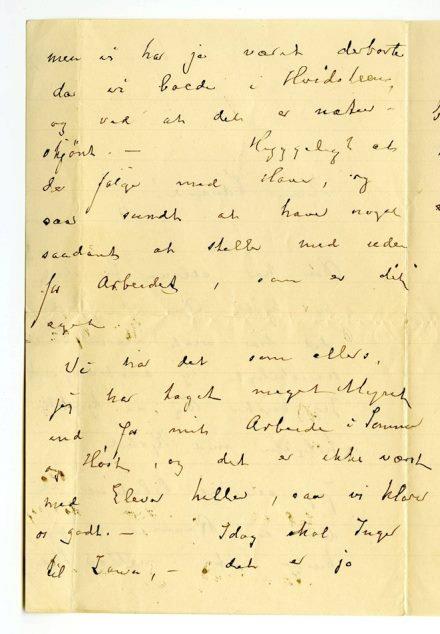 men vi har jo været derborte
da vi boede i Hvidsteen,
og ved at det er natur-
skjönt. — Hyggeligt at
der følge med Have, og
saa sundt at have noget
saadant at stelle med uden
for Arbeidet, som er dit
eget.
Vi har det som ellers,
jeg har taget meget
ind for mit Arbeide i Sommer
og Høst, og det er ikke værst
med Elever heller, saa vi klarer
os godt. — Idag skal Inger
til — det er jo